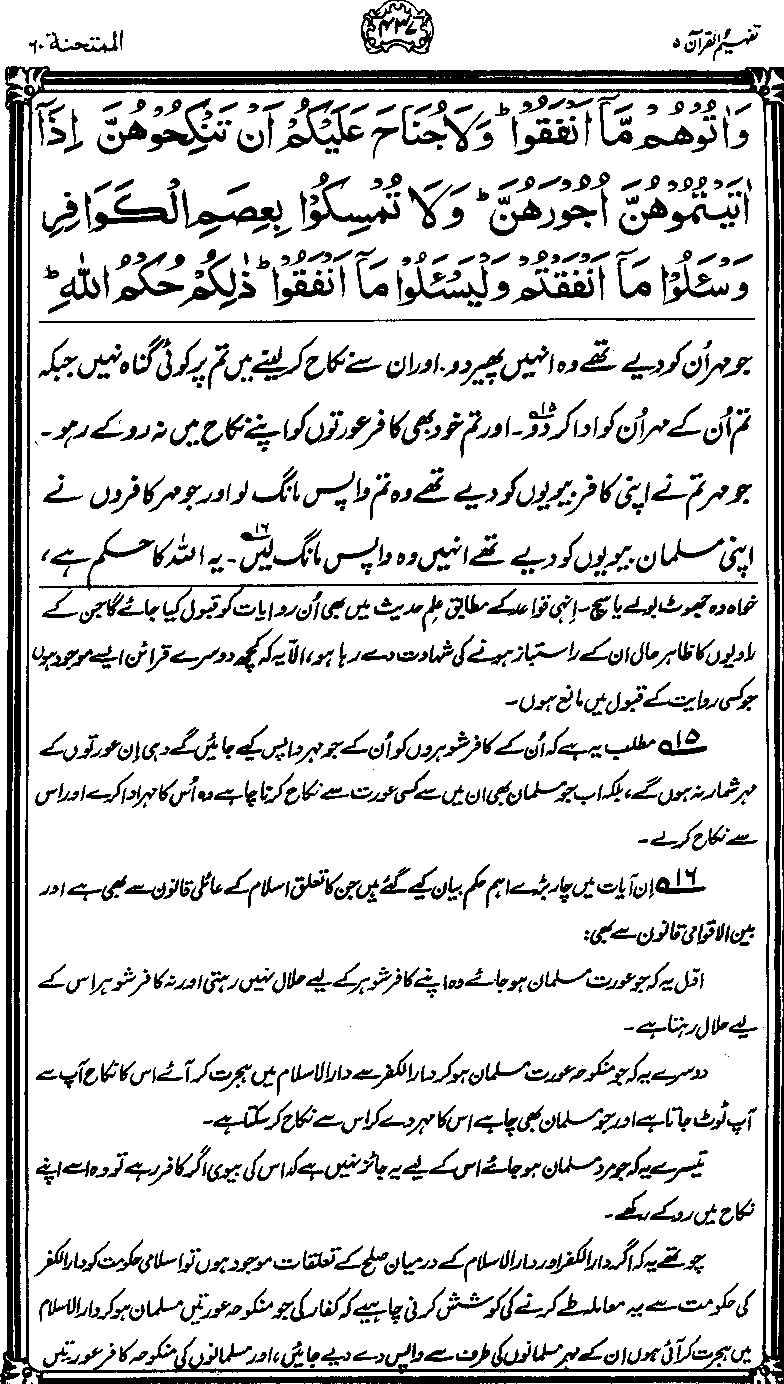 تفہیم القرآن ۵
۴۳۷
الممتحنۃ ۶۰
وَاٰتُوْهُمْ مَّاۤ اَنْفَقُوْا ؕ وَلَا جُنَاحَ عَلَيْكُمْ اَنْ تَنْكِحُوْهُنَّ اِذَاۤ
اٰتَيْتُمُوْهُنَّ اُجُوْرَهُنَّ ؕ وَلَا تُمْسِكُوْا بِعِصَمِ الْكَوَافِرِ
وَسْـَٔلُوْا مَاۤ اَنْفَقْتُمْ وَلْيَسْـَٔلُوْا مَاۤ اَنْفَقُوْا ؕ ذٰلِكُمْ حُكْمُ اللّٰهِ ؕ
جو مہر اُن کو دیے تھے وہ انہیں پھیر دو۔ اور ان سے نکاح کر لینے میں تم پر کوئی گناہ نہیں جبکہ
تم اُن کے مہر اُن کو ادا کر دو۱۵۔ اور تم خود بھی کافر عورتوں کو اپنے نکاح میں نہ روکے رہو۔
جو مہر تم نے اپنی کافر بیویوں کو دیے تھے وہ تم واپس مانگ لو اور جو مہر کافروں نے
اپنی مسلمان بیویوں کو دیے تھے انہیں وہ واپس مانگ لیں۱۶۔ یہ اللہ کا حکم ہے،
خواہ وہ جھوٹ بولے یا سچ۔ اِنہی قواعد کے مطابق علم حدیث میں بھی اُن روایات کو قبول کیا جائے گا جن کے
راویوں کا ظاہر حال ان کے راستباز ہونے کی شہادت دے رہا ہو، الّا یہ کہ کچھ دوسرے قرائن ایسے موجود ہوں
جو کسی روایت کے قبول میں مانع ہوں۔
۱۵ مطلب یہ ہے کہ اُن کے کافر شوہروں کو اُن کے جو مہر واپس کیے جائیں گے وہی اِن عورتوں کے
مہر شمار نہ ہوں گے، بلکہ اب جو مسلمان بھی ان میں سے کسی عورت سے نکاح کرنا چاہے وہ اُس کا مہر ادا کرے اور اس
سے نکاح کرلے۔
۱۶ اِن آیات میں چار بڑے اہم حکم بیان کیے گئے ہیں جن کا تعلق اسلام کے عائلی قانون سے بھی ہے اور
بین الاقوامی قانون سے بھی:
اوّل یہ کہ جو عورت مسلمان ہو جائے وہ اپنے کافر شوہر کے لیے حلال نہیں رہتی اور نہ کافر شوہر اس کے
لیے حلال رہتا ہے۔
دوسرے یہ کہ جو منکوحہ عورت مسلمان ہو کر دارالکفر سے دارالاسلام میں ہجرت کر آئے اس کا نکاح آپ سے
آپ ٹوٹ جاتا ہے اور جو مسلمان بھی چاہے اس کا مہر دے کر اس سے نکاح کر سکتا ہے۔
تیسرے یہ کہ جو مرد مسلمان ہو جائے اُس کے لیے یہ جائز نہیں ہے کہ اس کی بیوی اگر کافر رہے تو وہ اسے اپنے
نکاح میں روکے رکھے۔
چوتھے یہ کہ اگر دارالکفر اور دارالاسلام کے درمیان صلح کے تعلقات موجود ہوں تو اسلامی حکومت کو دارالکفر
کی حکومت سے یہ معاملہ طے کرنے کی کوشش کرنی چاہیے کہ کفار کی جو منکوحہ عورتیں مسلمان ہو کر دارالاسلام
میں ہجرت کر آئی ہوں ان کے مہر مسلمانوں کی طرف سے واپس دے دیے جائیں، اور مسلمانوں کی منکوحہ کافر عورتیں